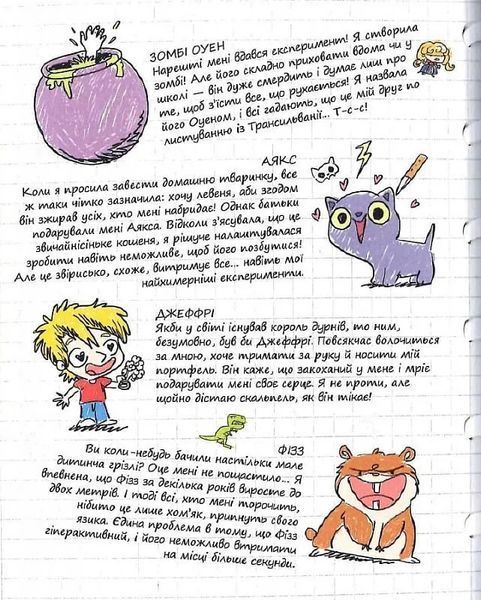 ЗОМБІ ОУЕН
Нарешті мені вдався експеримент! Я створила
зомбі! Але його складно приховати вдома чи у
школі — він дуже смердить і думає лиш про
те, щоб з'їсти все, що рухається! Я назвала
його Оуеном, і всі гадають, що це мій друг по
листуванню із Трансильванії... Т-с-с!
АЯКС
Коли я просила завести домашню тваринку, все
ж таки чітко зазначила: хочу левеня, аби згодом
він зжирав усіх, хто мені набридає! Однак батьки
подарували мені Аякса. Відколи з'ясувала, що це
звичайнісіньке кошеня, я рішуче налаштувалася
зробити навіть неможливе, щоб його позбутися!
Але це звірисько, схоже, витримує все... навіть мої
найхимерніші експерименти.
ДЖЕФФРІ
Якби у світі існував король дурнів, то ним,
безумовно, був би Джеффрі. Повсякчас волочиться
за мною, хоче тримати за руку й носити мій
портфель. Він каже, що закоханий у мене і мріє
подарувати мені своє серце. Я не проти, але
щойно дістаю скальпель, як він тікає!
ФІЗЗ
Ви коли-небудь бачили настільки мале
дитинча грізлі? Оце мені не пощастило... Я
впевнена, що Фізз за декілька років виросте до
двох метрів. І тоді всі, хто мені торочить,
нібито це лише хом'як, припнуть свого
язика. Єдина проблема в тому, що Фізз
гіперактивний, і його неможливо втримати
на місці більше секунди.